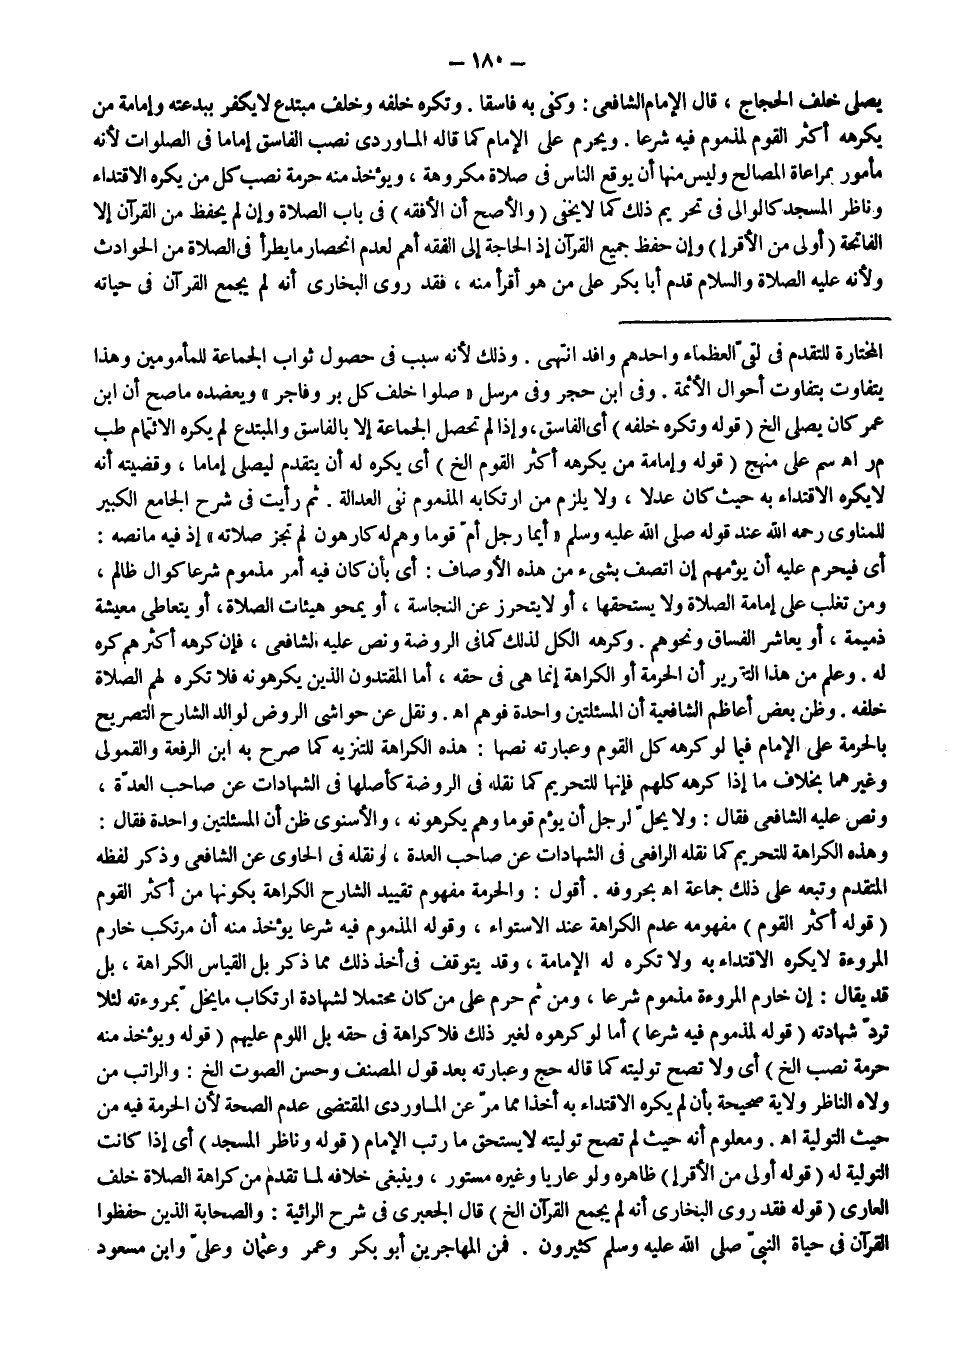 – ١٨٠ –
يصلى خلف الحجاج ، قال الإمام الشافعى : وكفى به فاسقا . وتكره خلفه وخلف مبتدع لا يكفر ببدعته وإمامة من
يكرهه أكثر القوم لمذموم فيه شرعا . ويحرم على الإمام كما قاله المـاوردى نصب الفاسق إماما فى الصلوات لأنه
مأمور بمراعاة المصالح وليس منها أن يوقع الناس فى صلاة مكروهة ، ويؤخذ منه حرمة نصب كل من يكره الاقتداء
وناظر المسجد كالوالى فى تحريم ذلك كما لايخفى ( والأصح أن الأفقه ) فى باب الصلاة وإن لم يحفظ من القرآن إلا
الفاتحة ( أولى من الأقرإ ) وإن حفظ جميع القرآن إذ الحاجة إلى الفقه أهم لعدم انحصار مايطرأ فى الصلاة من الحوادث
ولأنه عليه الصلاة والسلام قدم أبا بكر على من هو أقرأ منه ، فقد روى البخارى أنه لم يجمع القرآن فى حياته
المختارة للتقدم فى لقىّ العظماء واحدهم وافد انتهى . وذلك لأنه سبب فى حصول ثواب الجماعة للمأمومين وهذا
يتفاوت بتفاوت أحوال الأئمة . وفى ابن حجر وفى مرسل « صلوا خلف كل بر وفاجر » ويعضده ماصح أن ابن
عمر كان يصلى الخ ( قوله وتكره خلفه ) أى الفاسق ، وإذا لم تحصل الجماعة إلا بالفاسق والمبتدع لم يكره الائتمام طب
مر اهـ سم على منهج ( قوله وإمامة من يكرهه أكثر القوم الخ ) أى يكره له أن يتقدم ليصلى إماما ، وقضيته أنه
لايكره الاقتداء به حيث كان عدلا ، ولا يلزم من ارتكابه المذموم نفى العدالة . ثم رأيت فى شرح الجامع الكبير
للمناوى رحمه الله عند قوله صلى الله عليه وسلم « أيما رجل أمّ قوما وهم له كارهون لم تجز صلاته » إذ فيه مانصه :
أى فيحرم عليه أن يؤمهم إن اتصف بشىء من هذه الأوصاف : أى بأن كان فيه أمر مذموم شرعا كوال ظالم ،
ومن تغلب على إمامة الصلاة ولا يستحقها ، أو لايتحرز عن النجاسة ، أو يمحو هيئات الصلاة ، أو يتعاطى معيشة
ذميمة ، أو يعاشر الفساق ونحوهم . وكرهه الكل لذلك كما فى الروضة ونص عليه الشافعى ، فإن كرهه أكثرهم كره
له . وعلم من هذا التقرير أن الحرمة أو الكراهة إنما هى فى حقه ، أما المقتدون الذين يكرهونه فلا تكره لهم الصلاة
خلفه . وظن بعض أعاظم الشافعية أن المسئلتين واحدة فوهم اهـ . ونقل عن حواشى الروض لوالد الشارح التصريح
بالحرمة على الإمام فيما لو كرهه كل القوم وعبارته نصها : هذه الكراهة للتنزيه كما صرح به ابن الرفعة والقمولى
وغيرهما بخلاف ما إذا كرهه كلهم فإنها للتحريم كما نقله فى الروضة كأصلها فى الشهادات عن صاحب العدّة ،
ونص عليه الشافعى فقال : ولا يحلّ لرجل أن يؤم قوما وهم يكرهونه ، والأسنوى ظن أن المسئلتين واحدة فقال :
وهذه الكراهة للتحريم كما نقله الرافعى فى الشهادات عن صاحب العدة ، ونقله فى الحاوى عن الشافعى وذكر لفظه
المتقدم وتبعه على ذلك جماعة اهـ بحروفه . أقول : والحرمة مفهوم تقييد الشارح الكراهة بكونها من أكثر القوم
( قوله أكثر القوم ) مفهومه عدم الكراهة عند الاستواء ، وقوله المذموم فيه شرعا يؤخذ منه أن مرتكب خارم
المروءة لايكره الاقتداء به ولا تكره له الإمامة ، وقد يتوقف فى أخذ ذلك مما ذكر بل القياس الكراهة ، بل
قد يقال : إن خارم المروءة مذموم شرعا ، ومن ثم حرم على من كان محتملا لشهادة ارتكاب مايخلّ بمروءته لئلا
تردّ شهادته ( قوله لمذموم فيه شرعا ) أما لو كرهوه لغير ذلك فلا كراهة فى حقه بل اللوم عليهم ( قوله ويؤخذ منه
حرمة نصب الخ ) أى ولا تصح توليته كما قاله حج وعبارته بعد قول المصنف وحسن الصوت الخ : والراتب من
ولاه الناظر ولاية صحيحة بأن لم يكره الاقتداء به أخذا مما مرّ عن المـاوردى المقتضى عدم الصحة لأن الحرمة فيه من
حيث التولية اهـ . ومعلوم أنه حيث لم تصح توليته لايستحق ما رتب الإمام ( قوله وناظر المسجد ) أى إذا كانت
التولية له ( قوله أولى من الأقرإ ) ظاهره ولو عاريا وغيره مستور ، وينبغى خلافه لمـا تقدم من كراهة الصلاة خلف
العارى ( قوله فقد روى البخارى أنه لم يجمع القرآن الخ ) قال الجعبرى فى شرح الرائية : والصحابة الذين حفظوا
القرآن فى حياة النبىّ صلى الله عليه وسلم كثيرون . فمن المهاجرين أبو بكر وعمر وعثمان وعلىّ وابن مسعود